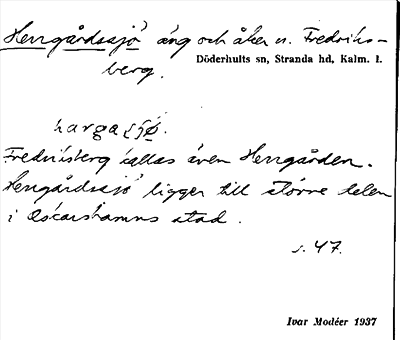 Herrgårdssjö äng och åker u. Fredriks-
berg.
Döderhults sn, Stranda hd, Kalm. l.
hargaʃʃø.
Fredriksberg kallas även Herrgården.
Herrgårdssjö ligger till större delen
i Oscarshamns stad.
s. 47.
Ivar Modéer 1937